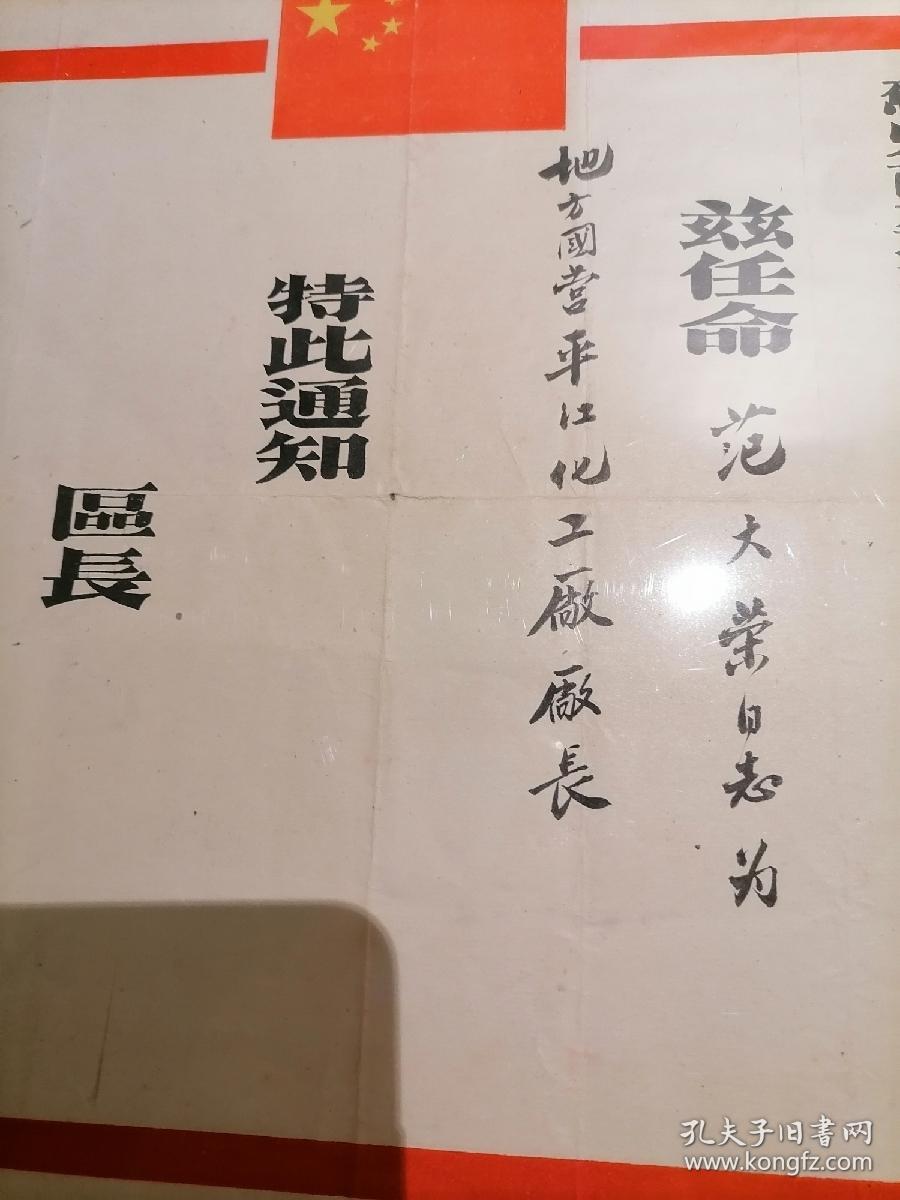 兹任命 范大荣同志为
地方國营平江化工厰厰長
特此通知
區長
孔夫子旧书网
www.kongfz.com